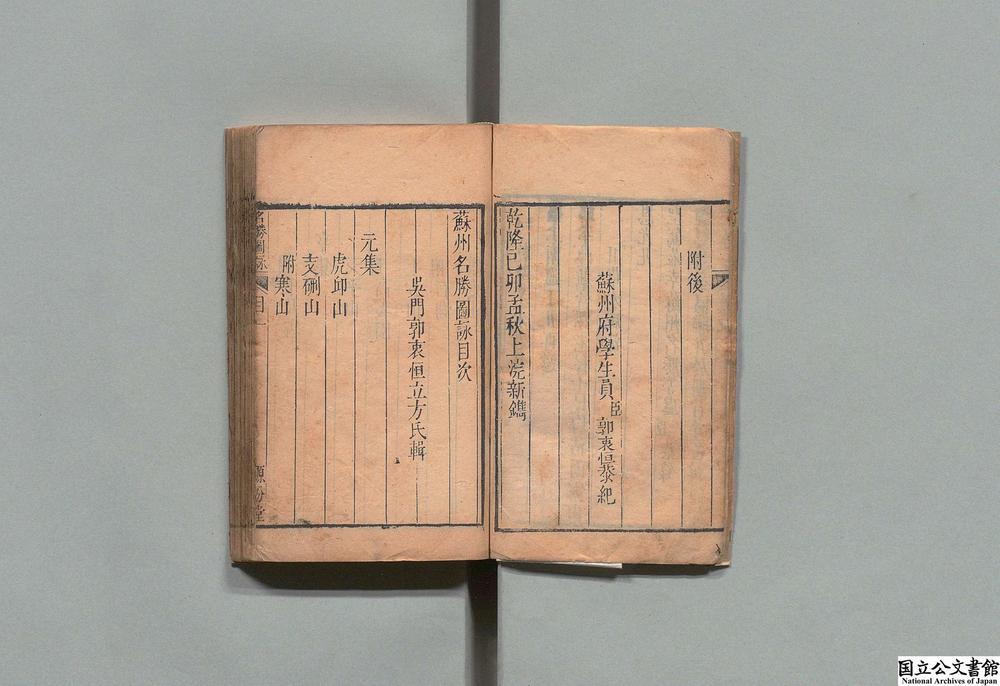 附後
蘇州府學生員臣郭衷恒恭紀
乾隆己卯孟秋上浣新鐫
蘇州名勝圖詠目次
吳門郭衷恒立方氏輯
元集
虎邱山
支硎山
附寒山
名勝圖詠
目一
国立公文書館
National Archives of Japan